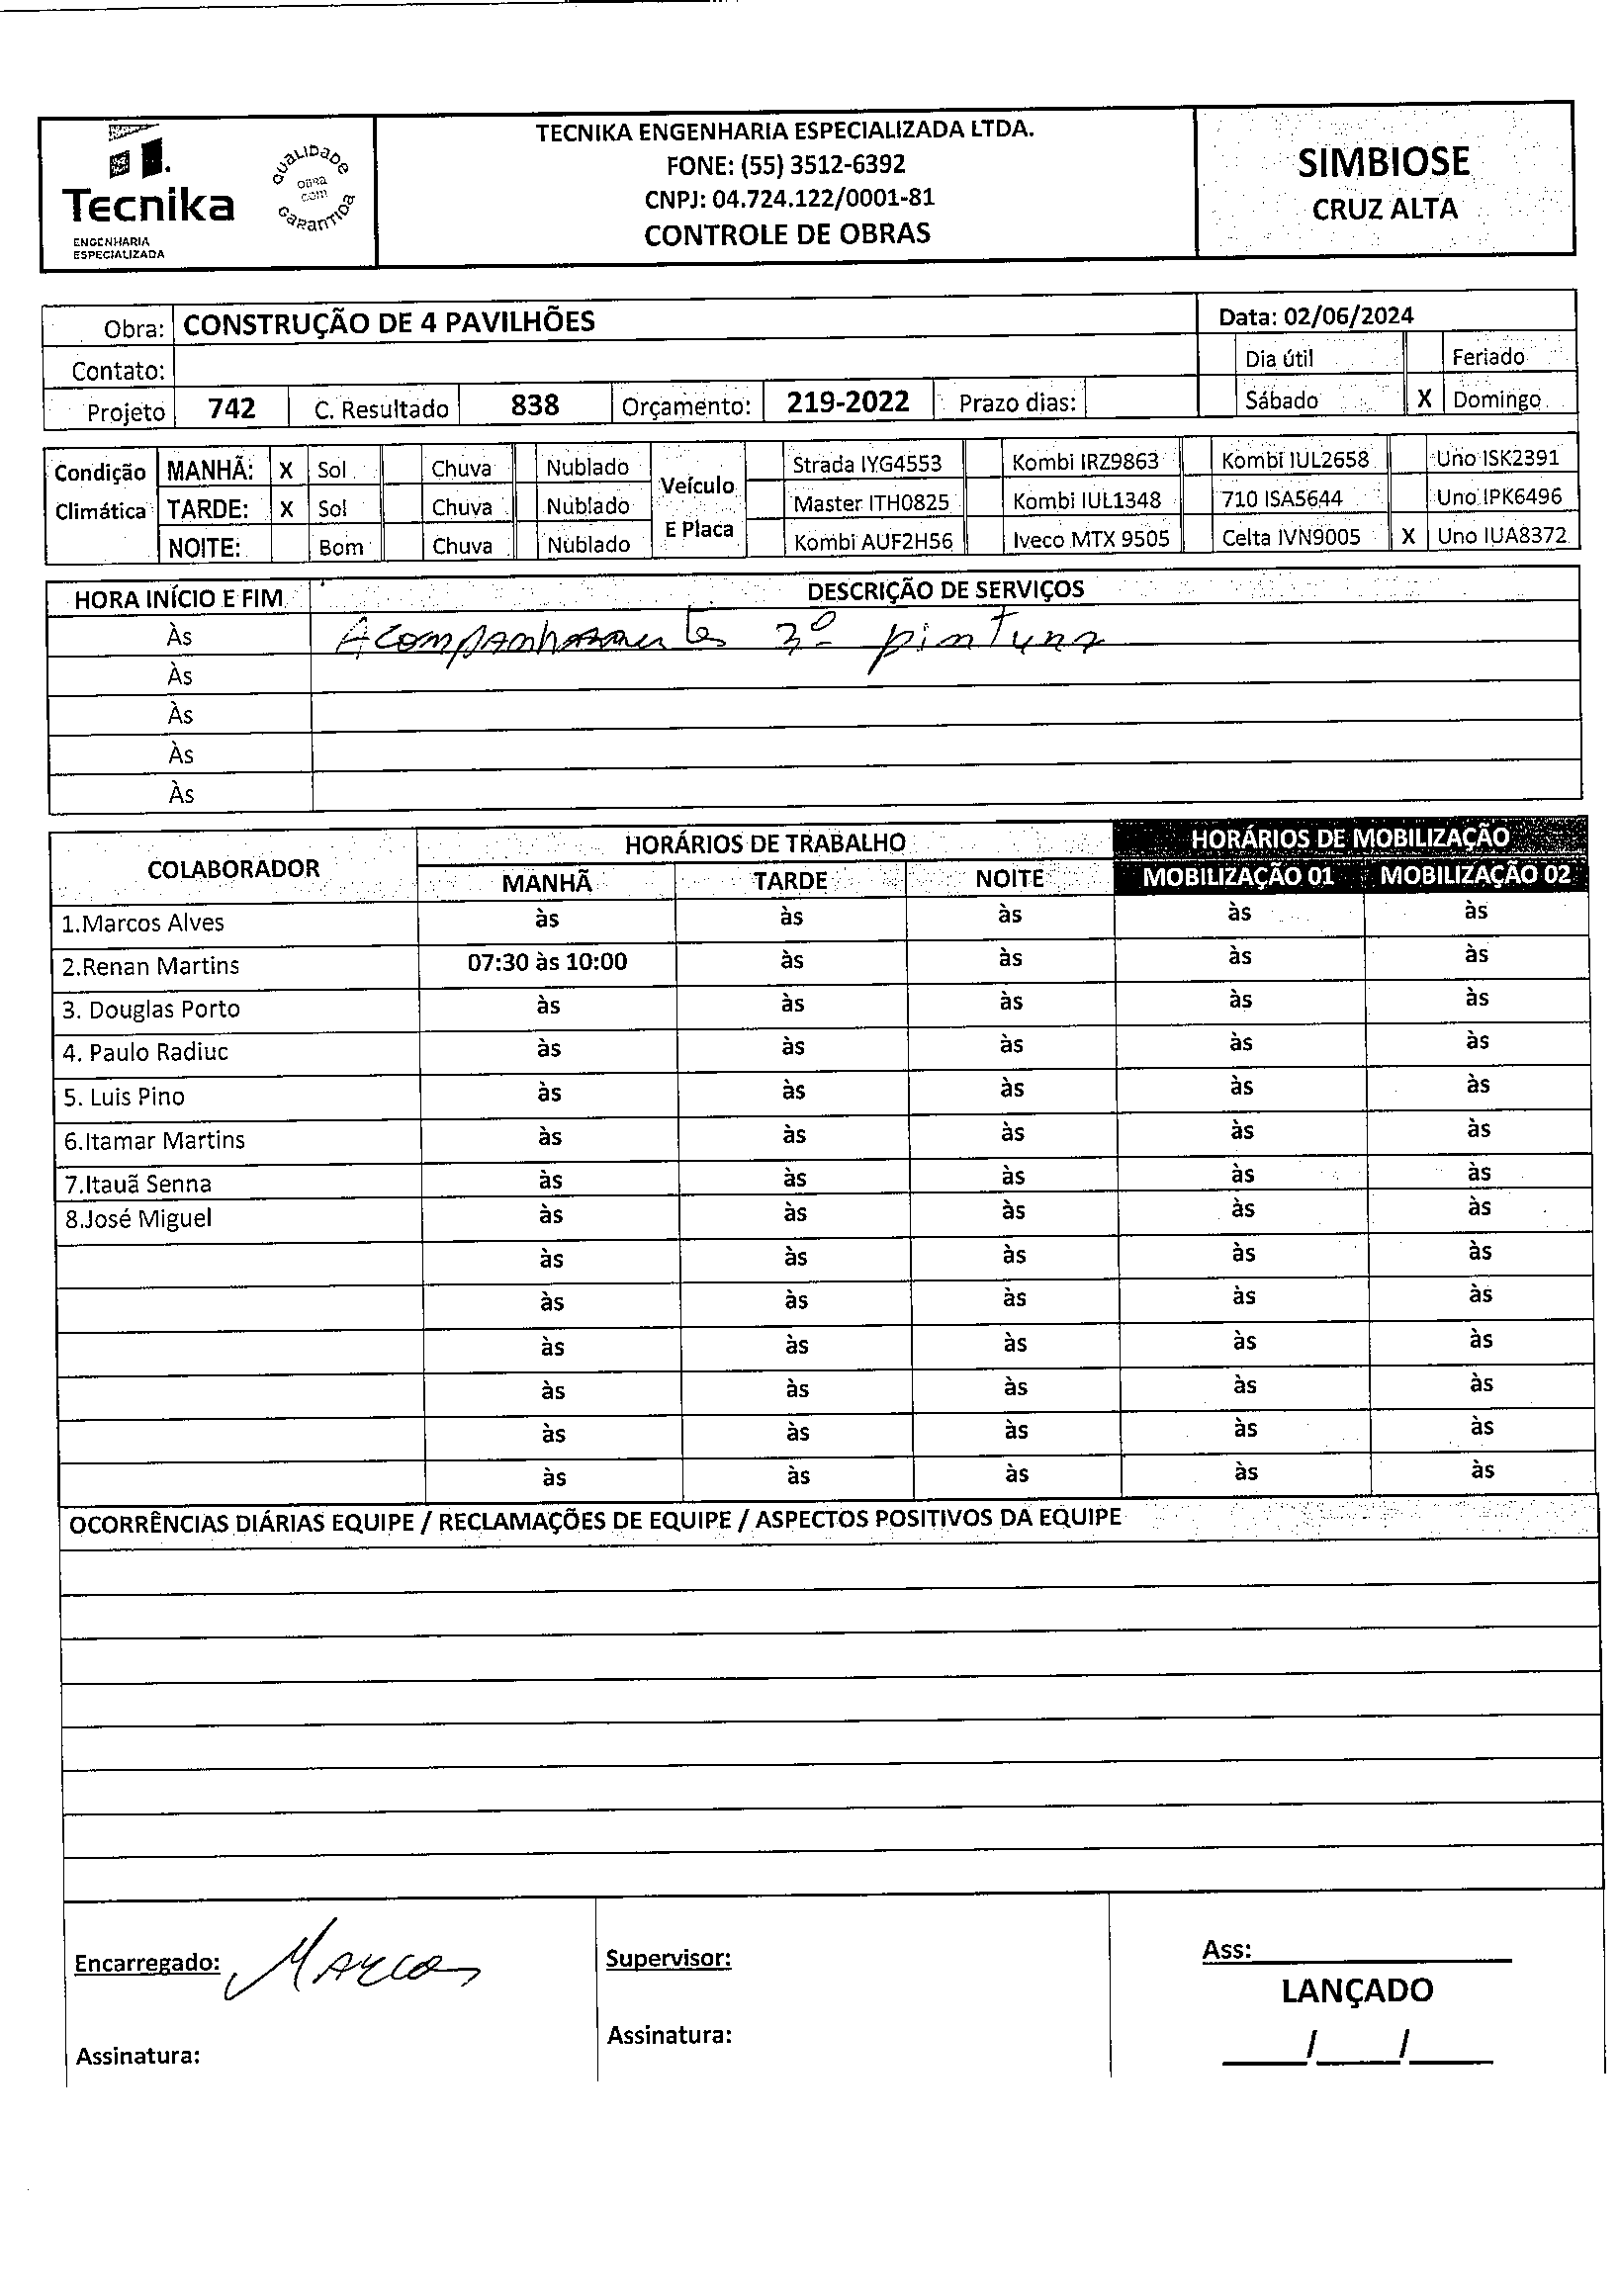 Tecnika
ENGENHARIA
ESPECIALIZADA
QUALIDADE
OBRA
COM
GARANTIDA
TECNIKA ENGENHARIA ESPECIALIZADA LTDA.
FONE: (55) 3512-6392
CNPJ: 04.724.122/0001-81
CONTROLE DE OBRAS
SIMBIOSE
CRUZ ALTA
Obra: CONSTRUÇÃO DE 4 PAVILHÕES Data: 02/06/2024
Contato: Dia útil Feriado
Projeto 742 C. Resultado 838 Orçamento: 219-2022 Prazo dias: Sábado X Domingo
Condição Climática Veículo E Placa
MANHÃ: X Sol Chuva Nublado Strada IYG4553 Kombi IRZ9863 Kombi IUL2658 Uno ISK2391
TARDE: X Sol Chuva Nublado Master ITH0825 Kombi IUL1348 710 ISA5644 Uno IPK6496
NOITE: Bom Chuva Nublado Kombi AUF2H56 Iveco MTX 9505 Celta IVN9005 X Uno IUA8372
HORA INÍCIO E FIM DESCRIÇÃO DE SERVIÇOS
Às Acompanhamento 3º pintura
Às
Às
Às
Às
COLABORADOR HORÁRIOS DE TRABALHO HORÁRIOS DE MOBILIZAÇÃO
MANHÃ TARDE NOITE MOBILIZAÇÃO 01 MOBILIZAÇÃO 02
1.Marcos Alves às às às às às
2.Renan Martins 07:30 às 10:00 às às às às
3. Douglas Porto às às às às às
4. Paulo Radiuc às às às às às
5. Luis Pino às às às às às
6.Itamar Martins às às às às às
7.Itauã Senna às às às às às
8.José Miguel às às às às às
às às às às às
às às às às às
às às às às às
às às às às às
às às às às às
às às às às às
OCORRÊNCIAS DIÁRIAS EQUIPE / RECLAMAÇÕES DE EQUIPE / ASPECTOS POSITIVOS DA EQUIPE
Encarregado: Marcos Supervisor: Ass:
LANÇADO
Assinatura: Assinatura: / /